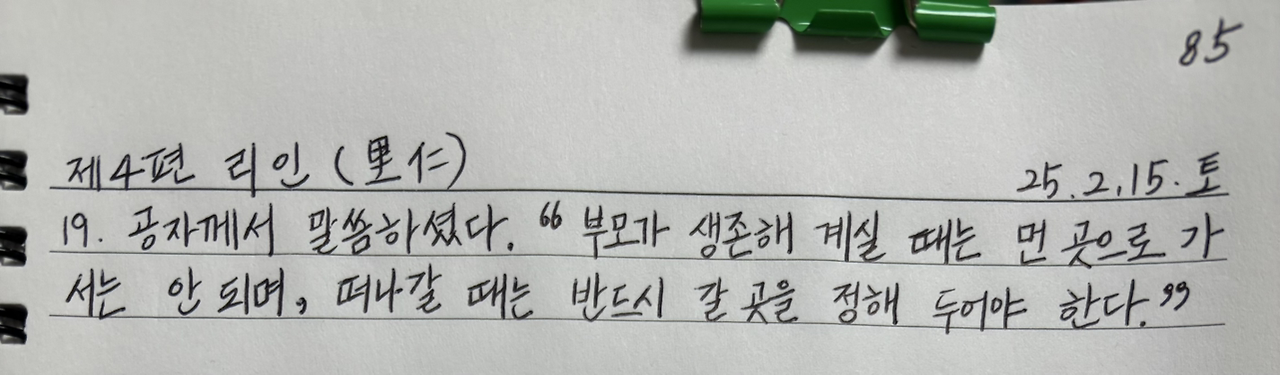 85
제4편 리인 (里仁) 25.2.15. 토
19. 공자께서 말씀하셨다. “부모가 생존해 계실 때는 먼 곳으로 가
서는 안 되며, 떠나갈 때는 반드시 갈 곳을 정해 두어야 한다.”